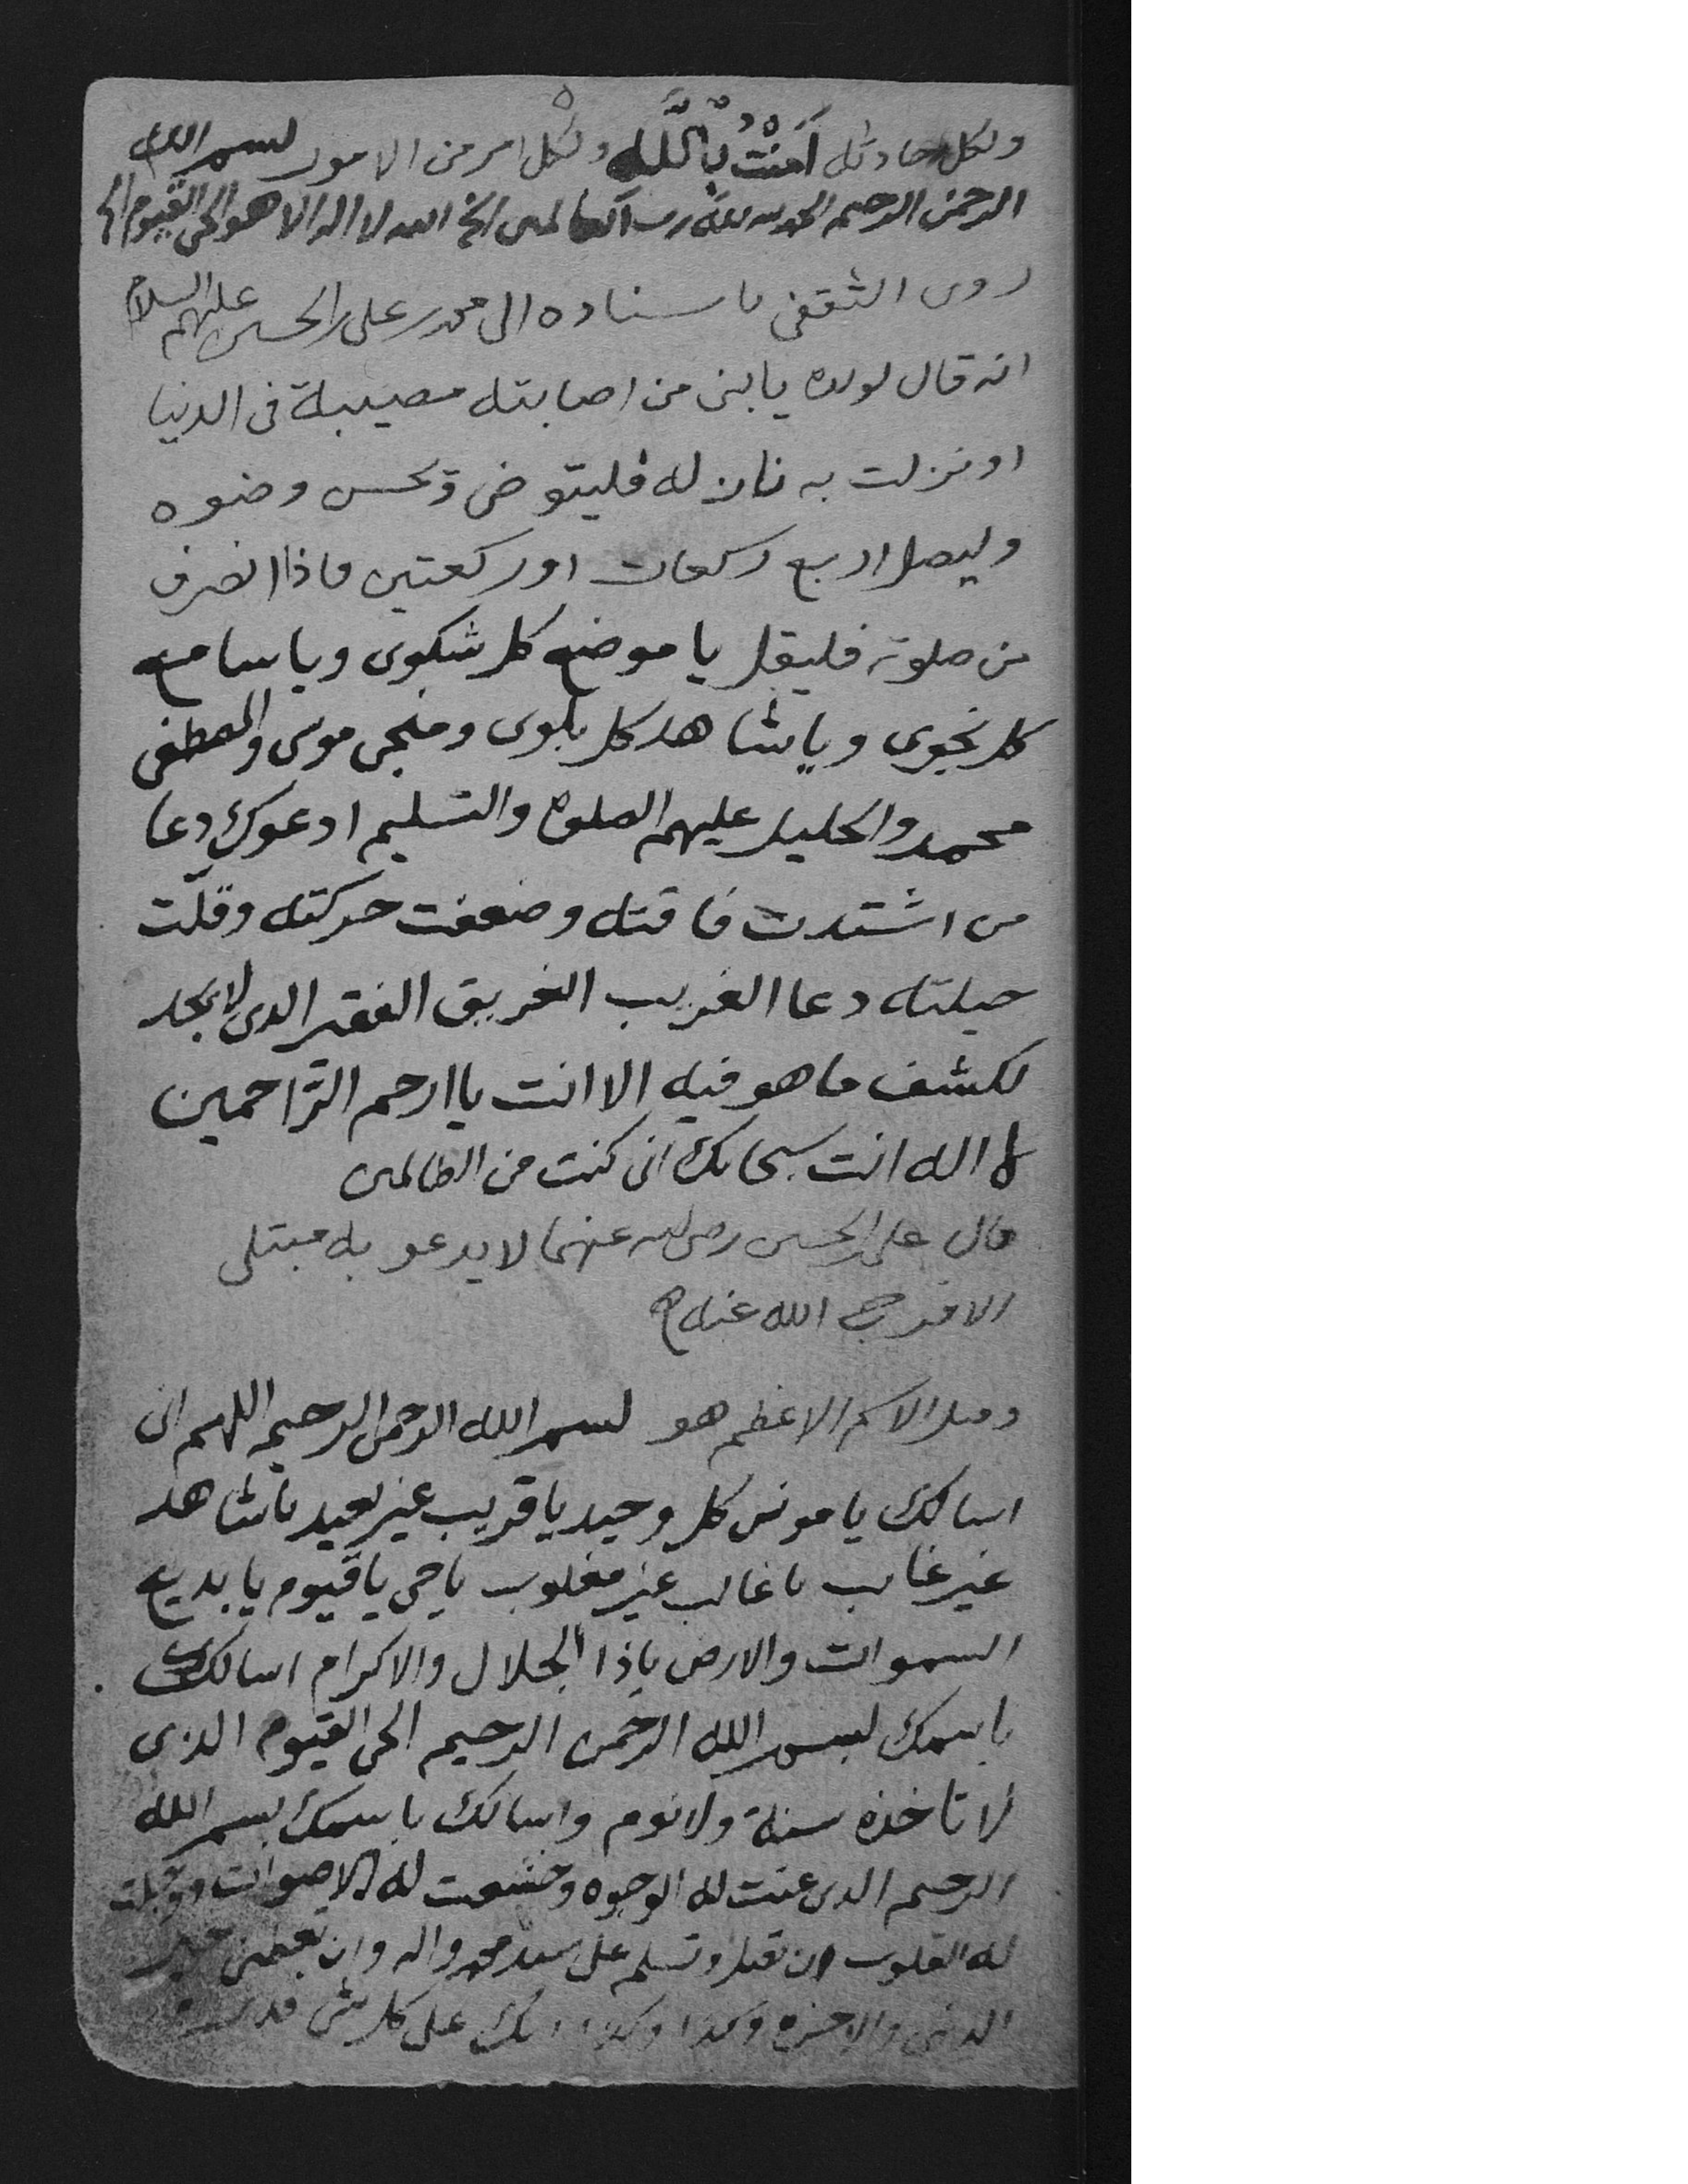 ولكل حادثه اَمَنْتُ بِاللَّه ولكل امر من الامور بسم الله
الرحمن الرحيم الحمد لله رب العالمين الخ الله لا اله الا هو الحي القيوم الخ
روى الثقفى باسناده الى محمد بن على بن الحسين عليهم السلام
انه قال لولده يا بنى من اصابته مصيبة فى الدنيا
او نزلت به نازله فليتوضى ويحسن وضوه
وليصل اربع ركعات او ركعتين فاذا انصرف
من صلوته فليقل يا موضع كل شكوى ويا سامع
كل نجوى ويا شاهد كل بلوى ومنجى موسى والمصطفى
محمد والخليل عليهم الصلوة والتسليم ادعوك دعا
من اشتدت فاقته وضعفت حركته وقلّت
حيلته دعا الغريب الغريق الفقير الذى لا يجد
لكشف ما هو فيه الا انت يا ارحم الرّاحمين
لا اله انت سبحانك انى كنت من الظالمين
قال على بن الحسين رضى الله عنهما لا يدعو به مبتلى
الا فرج الله عنه
وقيل الاسم الاعظم هو بسم الله الرحمن الرحيم اللهم انى
اسالك يا مونس كل وحيد يا قريب غير بعيد يا شاهد
غير غايب يا غالب غير مغلوب يا حى يا قيوم يا بديع
السموات والارض ياذا الجلال والاكرام اسالك
باسمك بسم الله الرحمن الرحيم الحى القيوم الذى
لا تاخذه سنة ولا نوم واسالك باسمك بسم الله
الرحيم الذى عنت له الوجوه وخشعت له الاصوات ووجلت
له القلوب ان تصل وتسلم على محمد واله وان تعطينى خير
الدنيا والاخرة وكذا وكذا انك على كل شى قدير